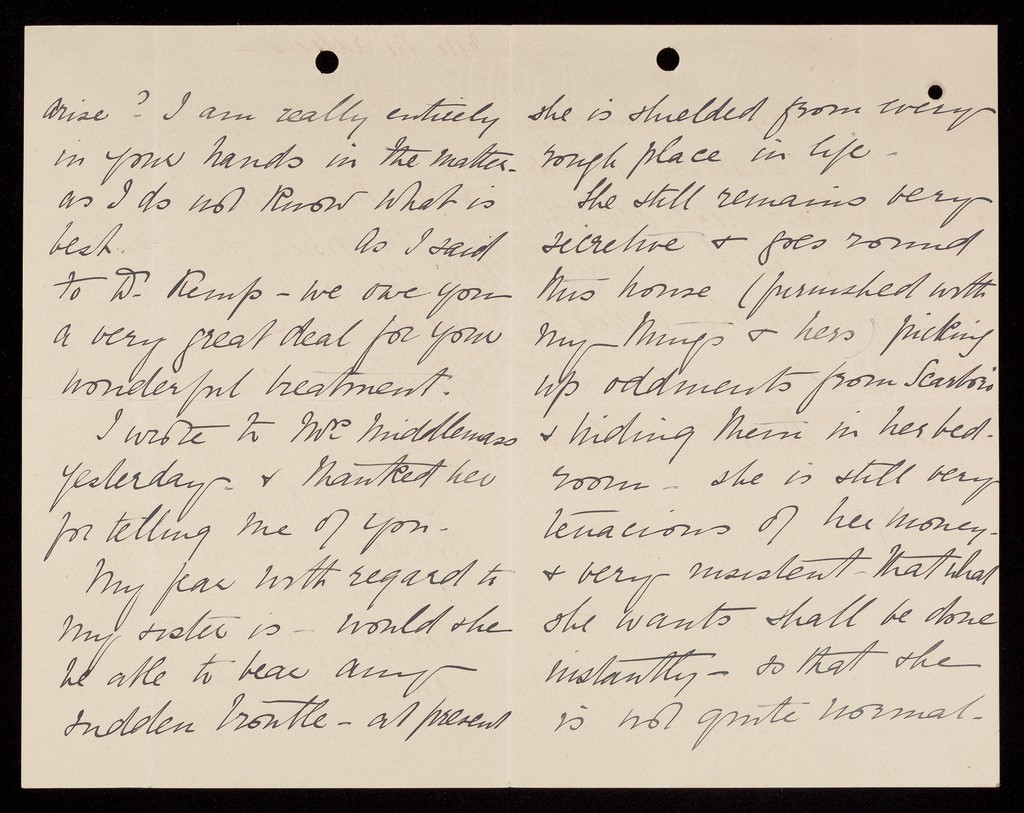 arise? I am really entirely
in your hands in the matter -
as I do not know what is
best. As I said
to Dr. Kemp - we owe you
a very great deal for your
wonderful treatment.
I wrote to Mrs Middlemass
yesterday - & thanked her
for telling me of you -
My fear with regard to
my sister is - would she
be able to bear any
sudden trouble - at present
she is shielded from every
rough place in life -
She still remains very
secretive & goes round
this house (furnished with
my things & hers) picking
up oddments from Scarboro
& hiding them in her bed-
room - she is still very
tenacious of her money -
& very insistent - that what
she wants shall be done
instantly - so that she
is not quite normal -